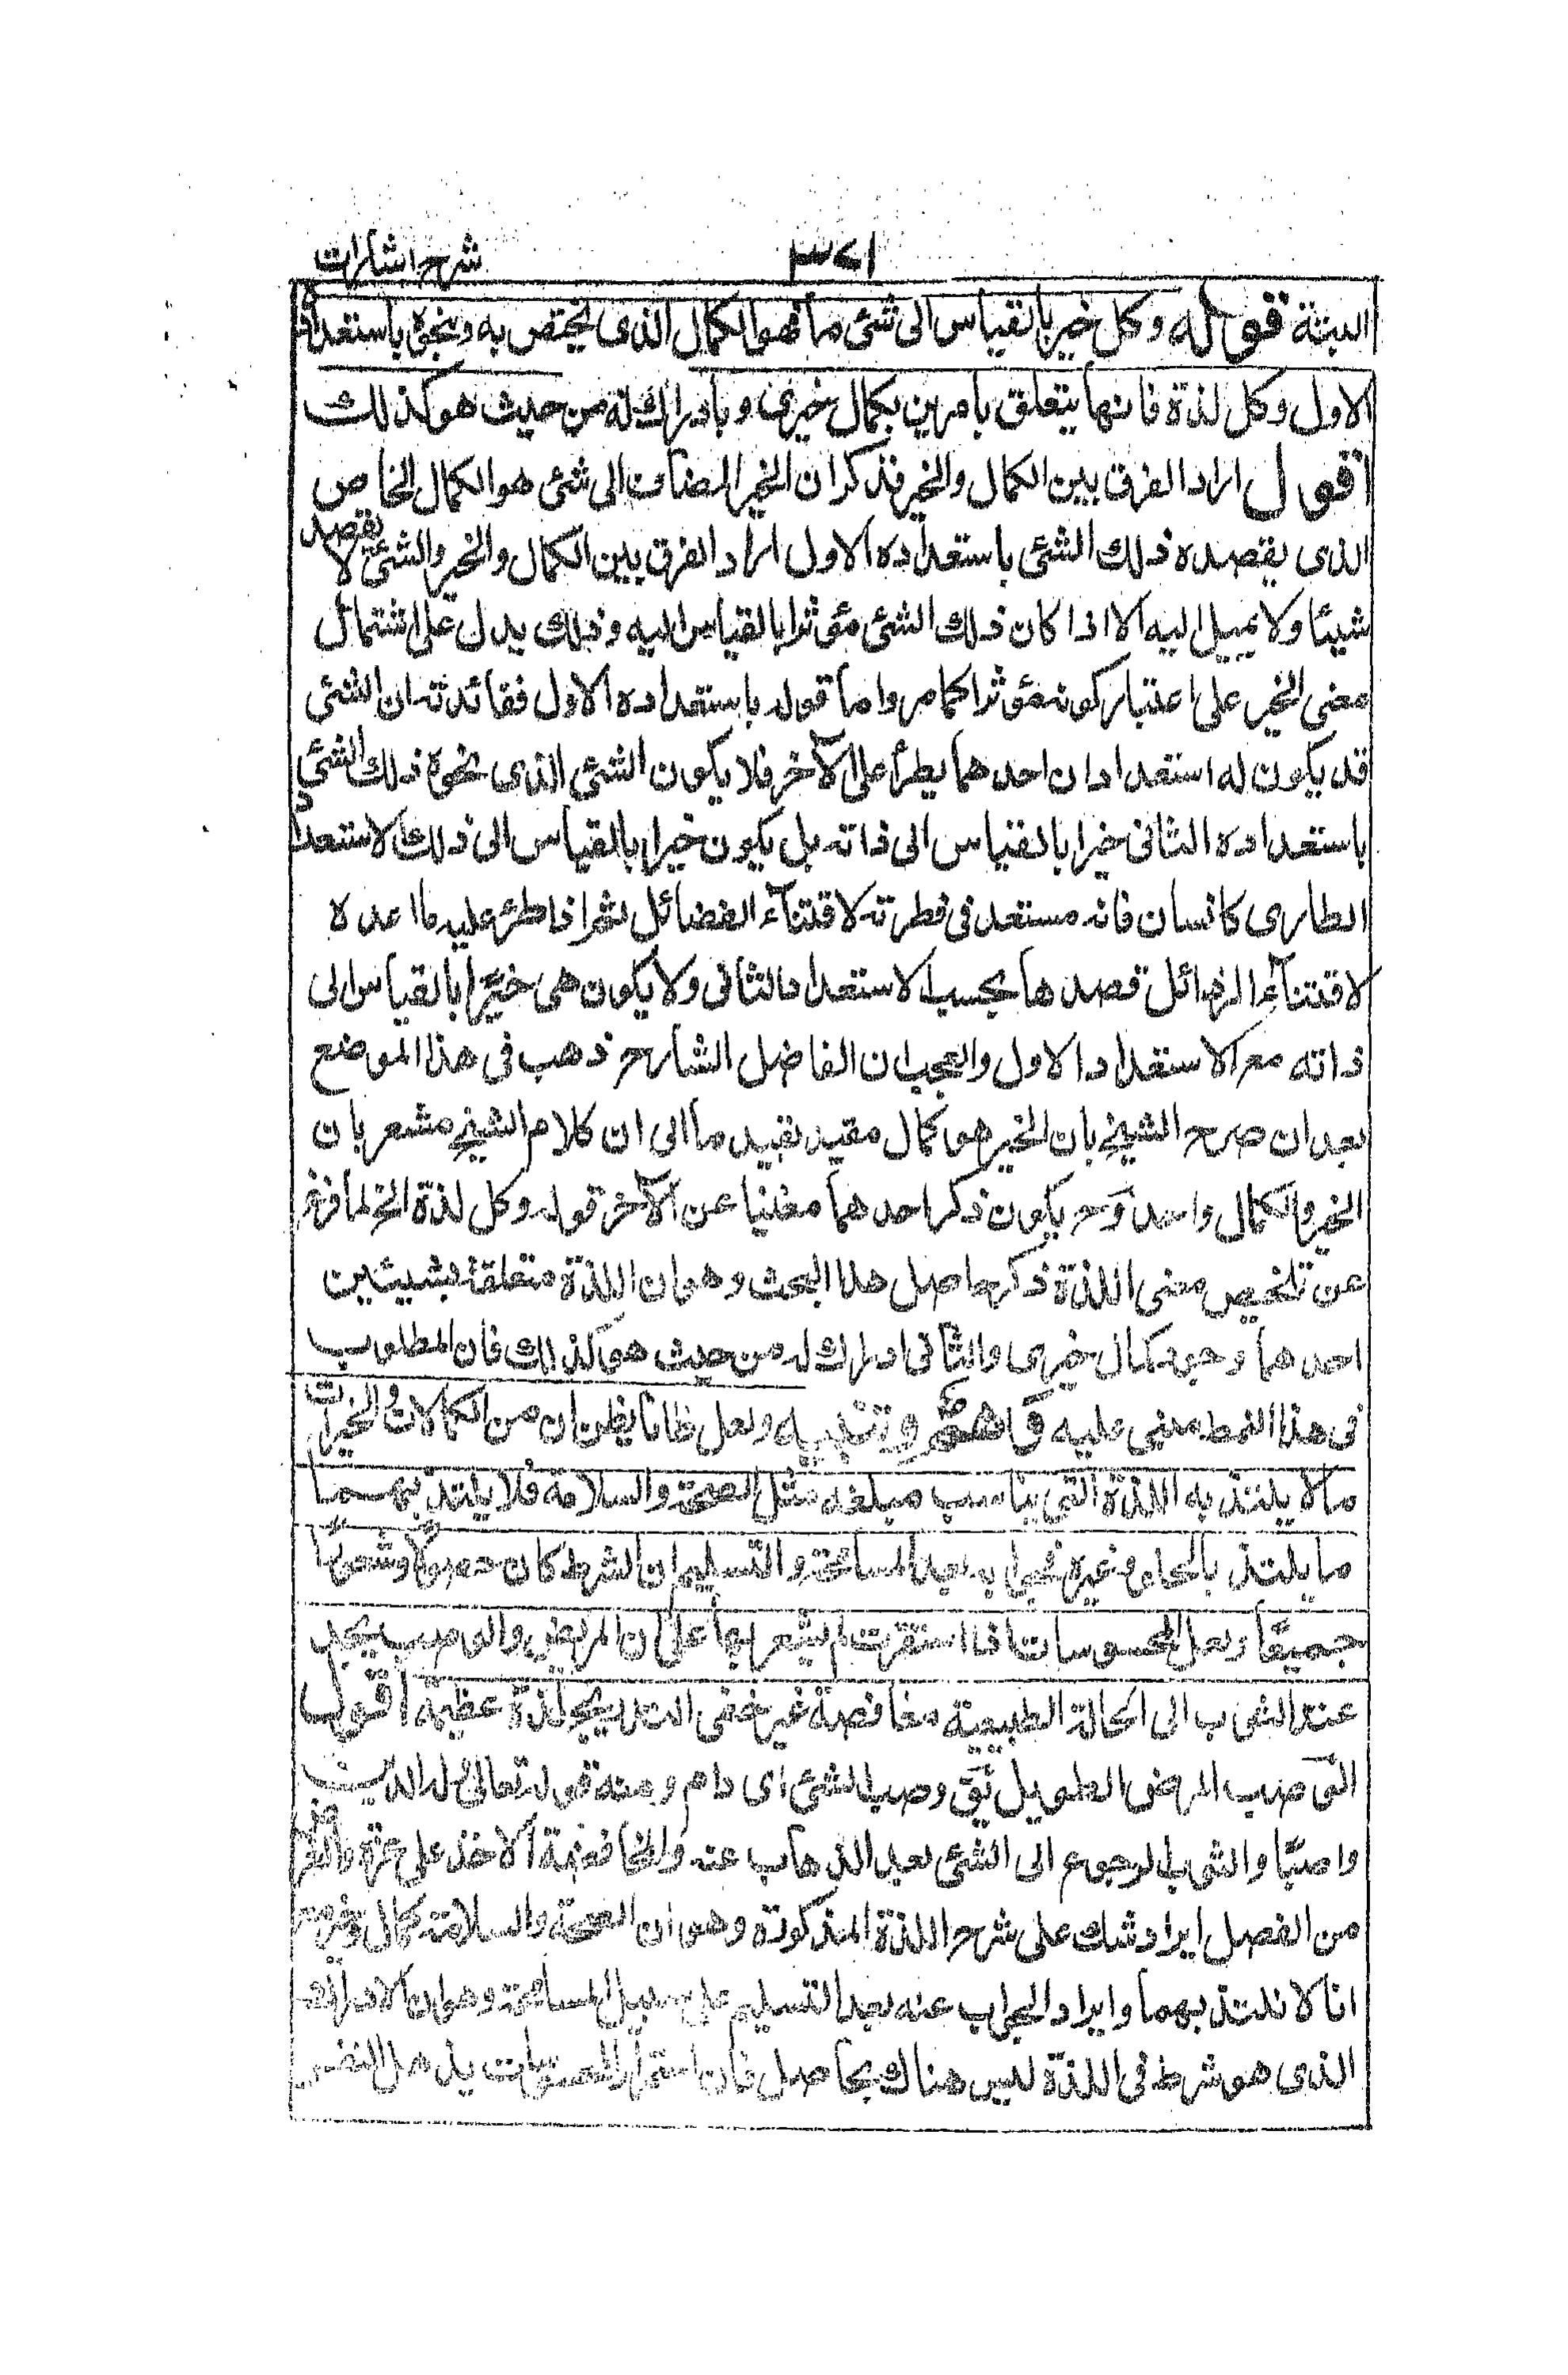 ٣٧١ شرح اشارات
البتة قوله وكل خير بالقياس الى شئى ما فهو الكمال الذى يختص به وينحوه باستعداده
الاول وكل لذة فانها يتعلق بامرين بكمال خيرى وبادراك له من حيث هو كذلك
اقول اراد الفرق بين الكمال والخير فذكر ان الخير المضاف الى شئى هو الكمال الخاص
الذى يقصده ذلك الشئى باستعداده الاول اراد الفرق بين الكمال والخير والشئى لا يقصد
شيئا ولا يميل اليه الا اذا كان ذلك الشئى مؤثرا بالقياس اليه وذلك يدل على اشتمال
معنى الخير على اعتبار كونه مؤثرا كما مر واما قوله باستعداده الاول ففائدته ان الشئى
قد يكون له استعدادان احدهما يطرأ على الآخر فلا يكون الشئى الذى نحوه ذلك الشئى
باستعداده الثانى خيرا بالقياس الى ذاته بل يكون خيرا بالقياس الى ذلك الاستعداد
الطارى كانسان فانه مستعد فى فطرته لاقتنآء الفضائل ثم اذا طرء عليه ما اعده
لاقتنآء الرذائل قصدها بحسب الاستعداد الثانى ولا يكون هى خيرًا بالقياس الى
ذاته مع الاستعداد الاول والعجب ان الفاضل الشارح ذهب فى هذا الموضع
بعد ان صرح الشيخ بان الخير هو كمال مقيد بقيد ما الى ان كلام الشيخ مشعر بان
الخير والكمال واحد وح يكون ذكر احدهما مغنيا عن الآخر قوله وكل لذة الخ لما فرغ
عن تلخيص معنى اللذة ذكر حاصل هذا البحث وهو ان اللذة متعلقة بشيئين
احدهما وجود كمال خيرى والثانى ادراك له من حيث هو كذلك فان المطلوب
فى هذا النمط مبنى عليه وهم وتنبيه ولعل ظانا يظن ان من الكمالات والخيرات
مالا يلتذ به اللذة التى يناسب مبلغه مثل الصحة والسلامة فلا يلتذ بهما
ما يلتذ بالحلو وغيره فجوابه بعد المسامحة والتسليم ان الشرط كان حصولا وشعورًا
جميعًا ولعل المحسوسات اذا استقرت لم يشعر بها على ان المريض والوصب يجد
عند الثوب الى الحالة الطبيعية مغافصة غير خفى التدريج لذة عظيمة اقول
الوصب المرض الطويل يق وصب الشئى اى دام ومنه قوله تعالى وله الدين
واصبًا والثوب الرجوع الى الشئى بعد الذهاب عنه والمغافصة الاخذ على غرة والغرض
من الفصل ايراد شك على شرح اللذة المذكورة وهو ان الصحة والسلامة كمال وخير مع
انا لا نلتذ بهما وايراد الجواب عنه بعد التسليم على سبيل المسامحة وهو ان الادراك
الذى هو شرط فى اللذة ليس هناك بحاصل فان استمرار المحسوسات يذهل النفس